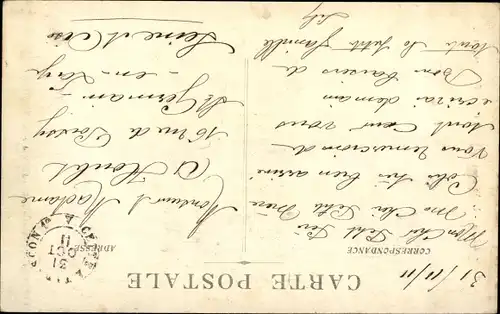 CARTE POSTALE
CORRESPONDANCE
ADRESSE
31/11/11
Mon Cher Petit
Mon Cher Petit Frère
Colis très bien arrivé
Vous remercions de
tout cœur vous
ecrirai demain
Bons baisers de
toute la petite famille
Monsieur & Madame
A
16 rue de Poissy
St Germain -
- en - Laye
Seine et Oise
31
OCT
11